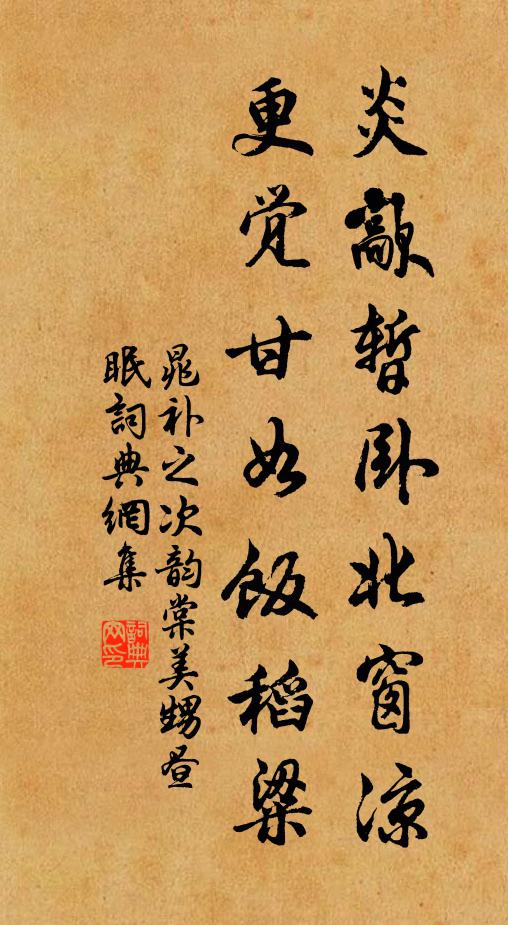 炎歊暂卧北窗凉
更觉甘如饭稻粱
晁补之次韵棠美甥昼
眠詞典網集
詞典網印